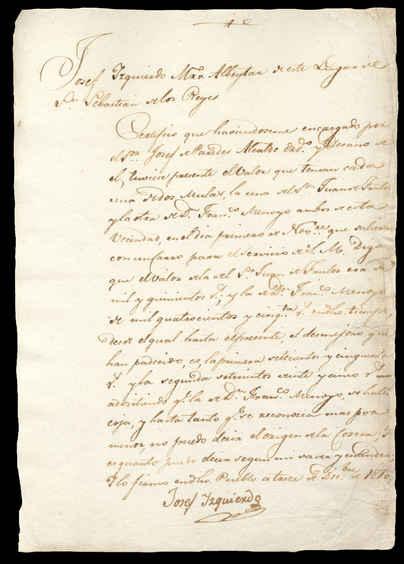 Josef Izquierdo Mro. Albeytar de este Lugar de
Sn. Sebastian de los Reyes
Certifico que haviendoseme encargado por
el Sor. Josef Paredes Alcalde
el, tuviese presente el valor que tenian cada
una de dos Mulas, la una de Dn. Juan de Santos
y la otra de Dn. Franco. Menoyo ambos de esta
Vecindad, en el dia primero de Nobre. que salieron
con un carro para el servicio de el M. Digo
que el valor de la de Dn. Juan de Santos era de
mil y quinientos rs. y la de Dn. Franco. Menoyo
de mil quatrocientos y cinqta. rs. en dho. tiempo
desde el qual hasta el presente, el desmejoro
han padecido, es, la primera setecientos y cinquenta
rs. y la segunda setecientos veinte y cinco rs.
advirtiendo qe. la de Dn. Franco. Menoyo, se halla
coja, y hasta tanto qe. se reconozca mas por
menor, no puedo decir el origen de la Cojera, y
es quanto puedo decir segun mi saver y entender
y lo firmo en dho. Pueblo a trece de Dicbre. de 1810
Josef Izquierdo